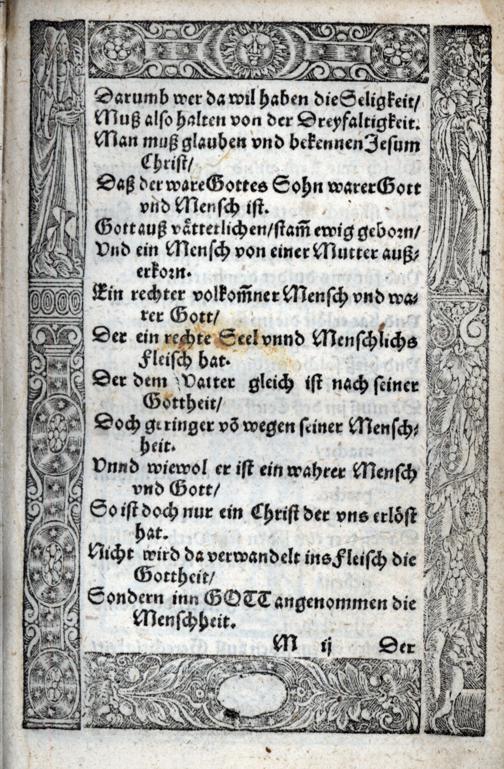 Darumb wer da wil haben die Seligkeit/
Muß also halten von der Dreyfaltigkeit.
Man muß glauben vnd bekennen Jesum
Christ/
Daß der ware Gottes Sohn warer Gott
vnd Mensch ist.
Gott auß vätterlichen/stam̃ ewig geborn/
Vnd ein Mensch von einer Mutter auß-
erkorn.
Ein rechter volkom̃ner Mensch vnd wa-
rer Gott/
Der ein rechte Seel vnnd Menschlichs
Fleisch hat.
Der dem Vatter gleich ist nach seiner
Gottheit/
Doch geringer võ wegen seiner Mensch-
heit.
Vnnd wiewol er ist ein wahrer Mensch
vnd Gott/
So ist doch nur ein Christ der vns erlöst
hat.
Nicht wird da verwandelt ins Fleisch die
Gottheit/
Sondern inn GOTT angenommen die
Menschheit.
M ij Der